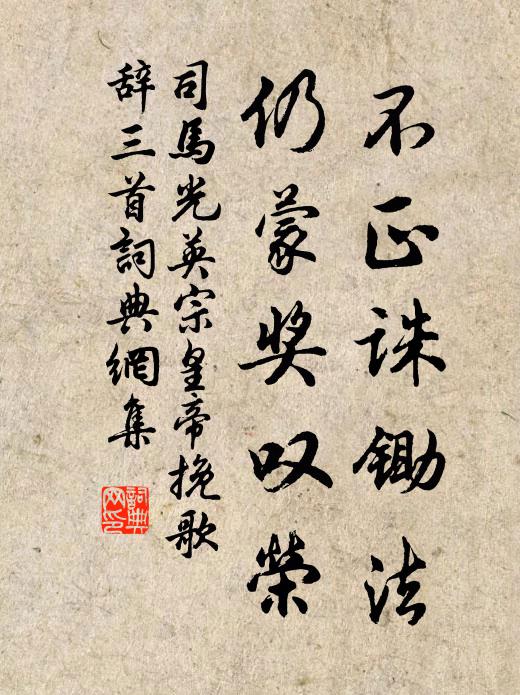 不正誅鋤法
仍蒙奖叹榮
司馬光英宗皇帝挽歌
辞三首詞典網集
詞典
网印